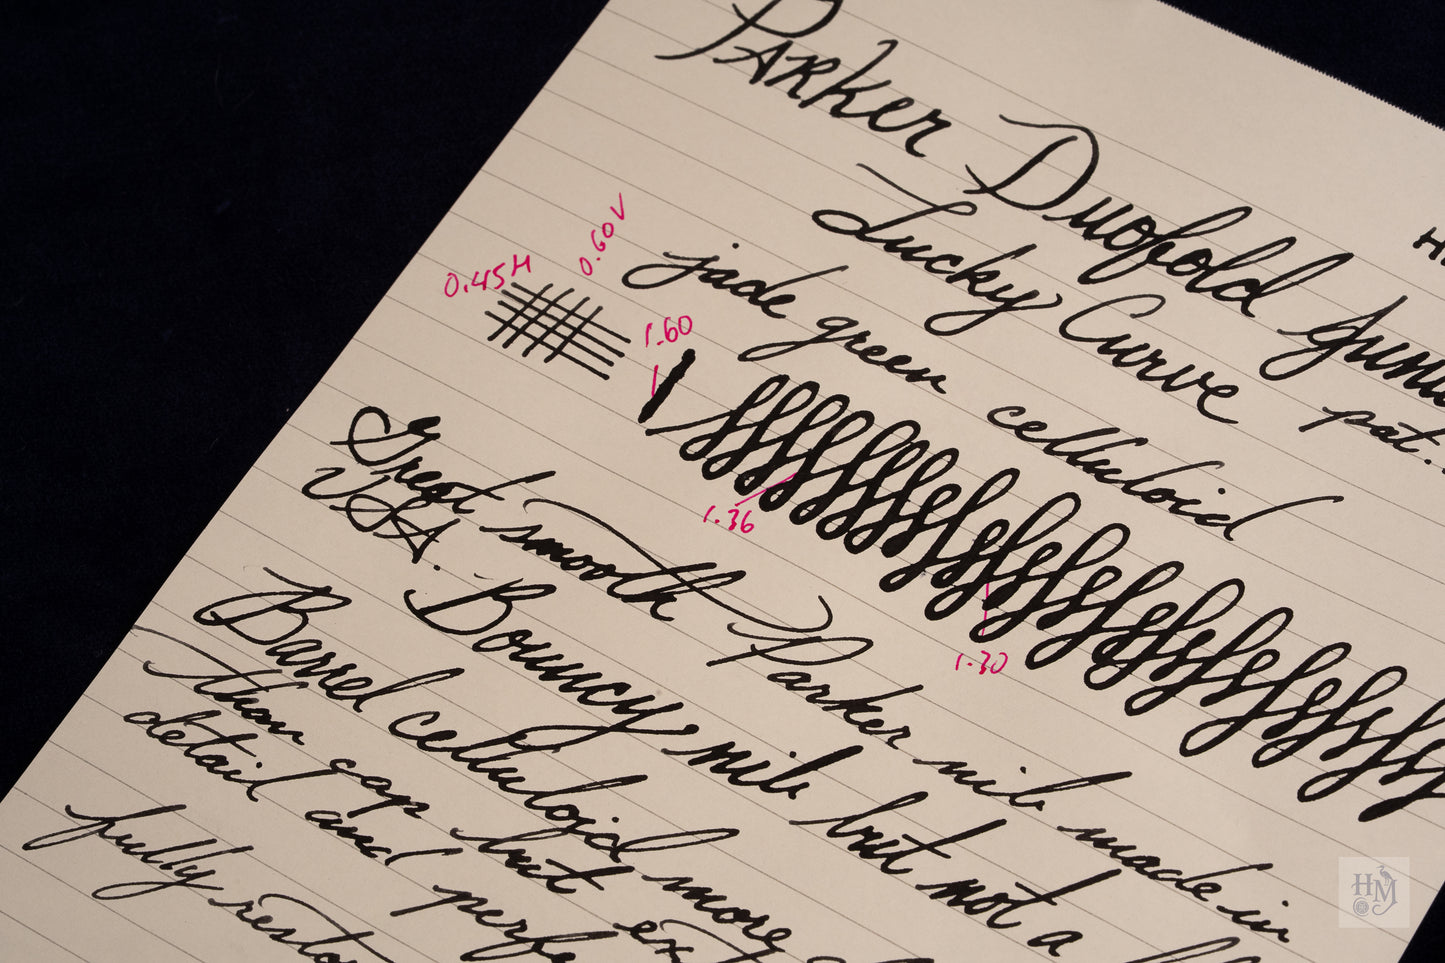 Parker Duofold
Lucky Curve pat.
jade green celluloid
0.45H
0.60V
1.60
1.36
1.30
Great smooth Parker nib made in
USA. Bouncy nib but not a
Barrel celluloid more
than cap but
detail and
fully
HM